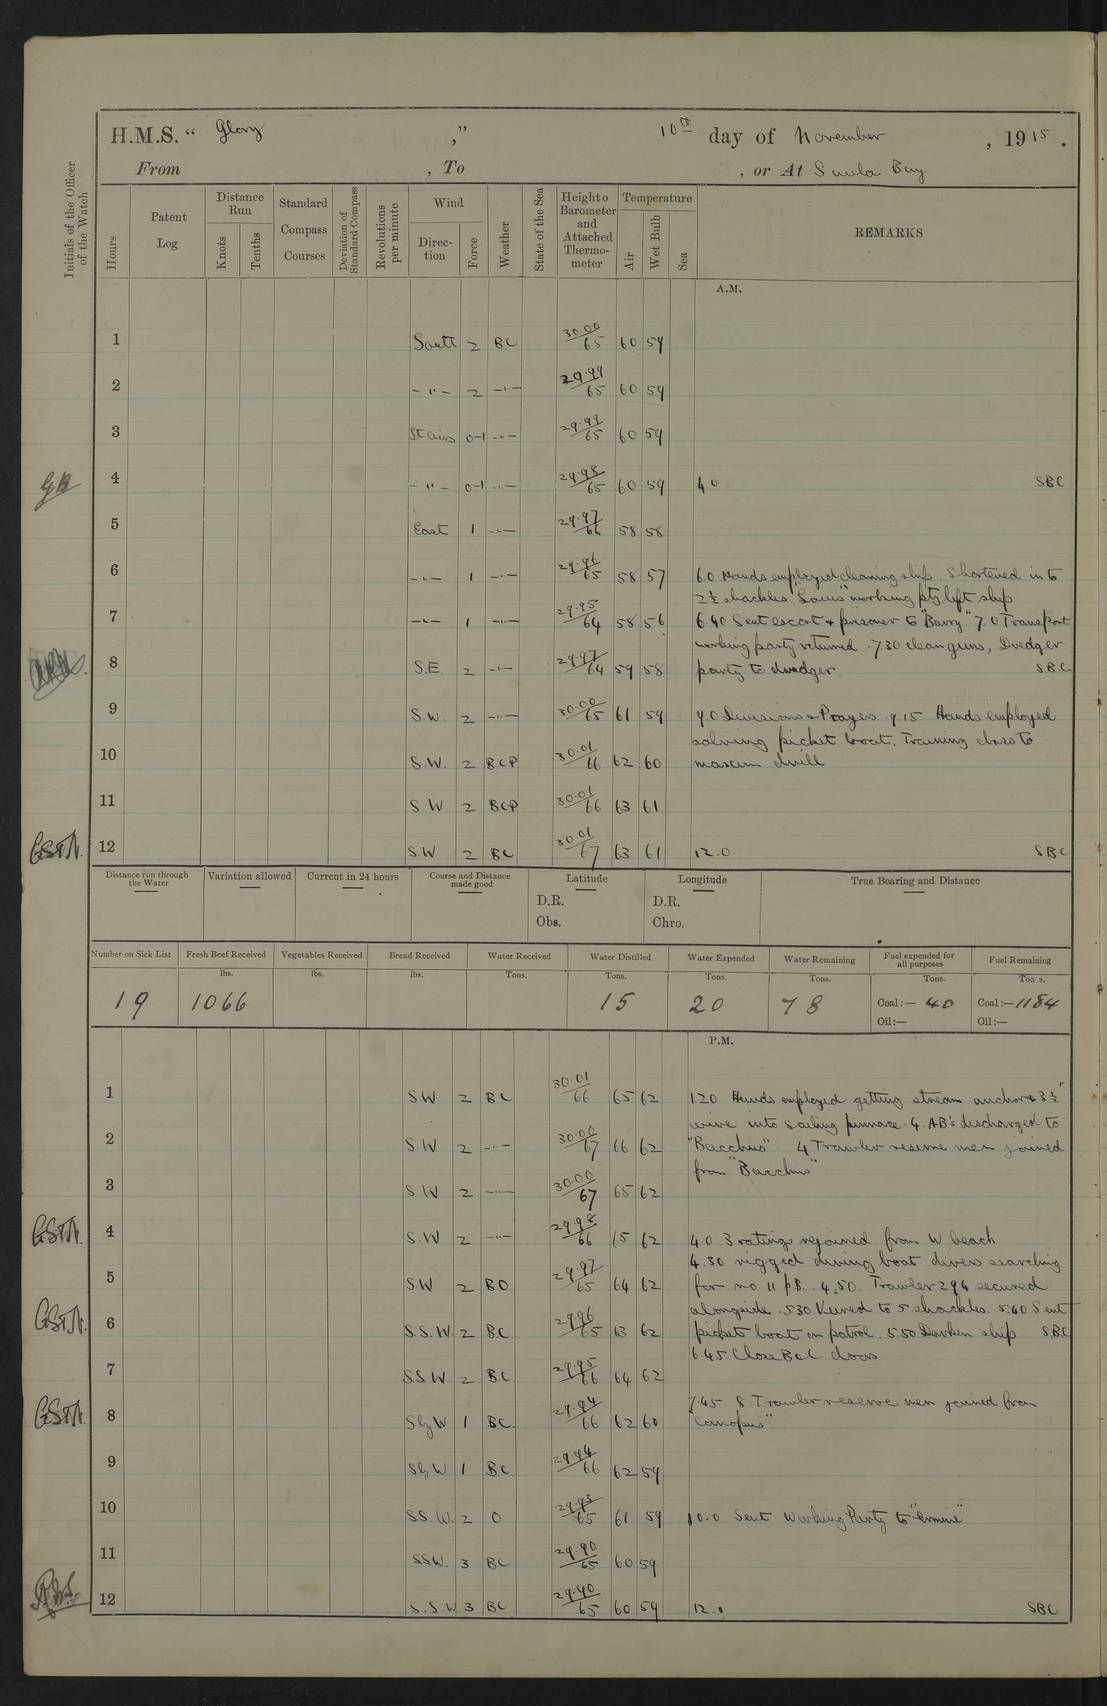 H.M.S. “ Glory ” 10th day of November , 1915 .
From , To , or At Suvla Bay
Initials of the Officer of the Watch
Hours
Patent Log
Distance Run
Knots
Tenths
Standard Compass Courses
Deviation of Standard Compass
Revolutions per minute
Wind
Direc-tion
Force
Weather
State of the Sea
Height o Barometer and Attached Thermo-meter
Temperature
Air
Wet Bulb
Sea
REMARKS
A.M.
1 South 2 BC 30.00/65 60 59
2 -"- 2 -"- 29.99/65 60 59
3 Lt airs 0-1 -"- 29.99/65 60 59
4 -"- 0-1 -"- 29.98/65 60 59 4.0 SBC
5 East 1 -"- 29.97/66 58 58
6 -"- 1 -"- 29.96/65 58 57 6.0 Hands employed cleaning ship. Shortened in to
2½ shackles. "Louis" working pty left ship
7 -"- 1 -"- 29.95/64 58 56 6.40 Sent escort & prisoner to "Barry" 7.0 Transport
working party returned. 7.30 clean guns, Dredger
8 S.E 2 -"- 29.97/64 59 58 party to dredger SBC
9 S.W. 2 -"- 30.00/65 61 59 9.0 Divisions & Prayers 9.15 Hands employed
salving picket boat. Training class to
10 S.W. 2 BCP 30.01/66 62 60 maxim drill
11 S W 2 BCP 30.01/66 63 61
GStA. 12 SW 2 BC 30.01/67 63 61 12.0 SBC
Distance run through the Water
Variation allowed
Current in 24 hours
Course and Distance made good
Latitude
D.R.
Obs.
Longitude
D.R.
Chro.
True Bearing and Distance
Number on Sick List
Fresh Beef Received
Vegetables Received
Bread Received
Water Received
Water Distilled
Water Expended
Water Remaining
Fuel expended for all purposes
Fuel Remaining
lbs. lbs. lbs. Tons. Tons. Tons. Tons. Tons. Tons.
19 1066 15 20 78 Coal:— 40 Coal:—1184
Oil:— Oil:—
P.M.
1 SW 2 BC 30.01/66 65 62 1.20 Hands employed getting stream anchor & 3½"
wire into Sailing pinnace. 4 AB's discharged to
2 S.W 2 -"- 30.00/67 66 62 "Bacchus" 4 Trawler reserve men joined
from "Bacchus"
3 S W 2 -"- 30.00/67 65 62
GStA. 4 S.W 2 -"- 29.98/66 65 62 4.0. 3 ratings rejoined from W beach
4.30 rigged diving boat divers searching
5 SW 2 BO 29.97/65 64 62 for no 11 p.B. 4.50. Trawler 294 secured
alongside. 5.30 Veered to 5 shackles. 5.40 Sent
GStA. 6 S.S.W. 2 BC. 29.96/65 63 62 picket boat on patrol. 5.50 Darken ship SBC
6.45. Close B&C doors
7 SS.W 2 B.C 29.95/66 64 62
7.45 8 Trawler reserve men joined from
GStA. 8 SbyW 1 BC. 29.94/66 62 60 "Canopus"
9 SbyW 1 B.C 29.94/66 62 59
10 SS.W. 2 O 29.93/65 61 59 10.0 Sent Working Party to "Ermine"
11 SSW. 3 BC 29.90/65 60 59
12 S.S.W 3 BC 29.90/65 60 59 12.0 SBC